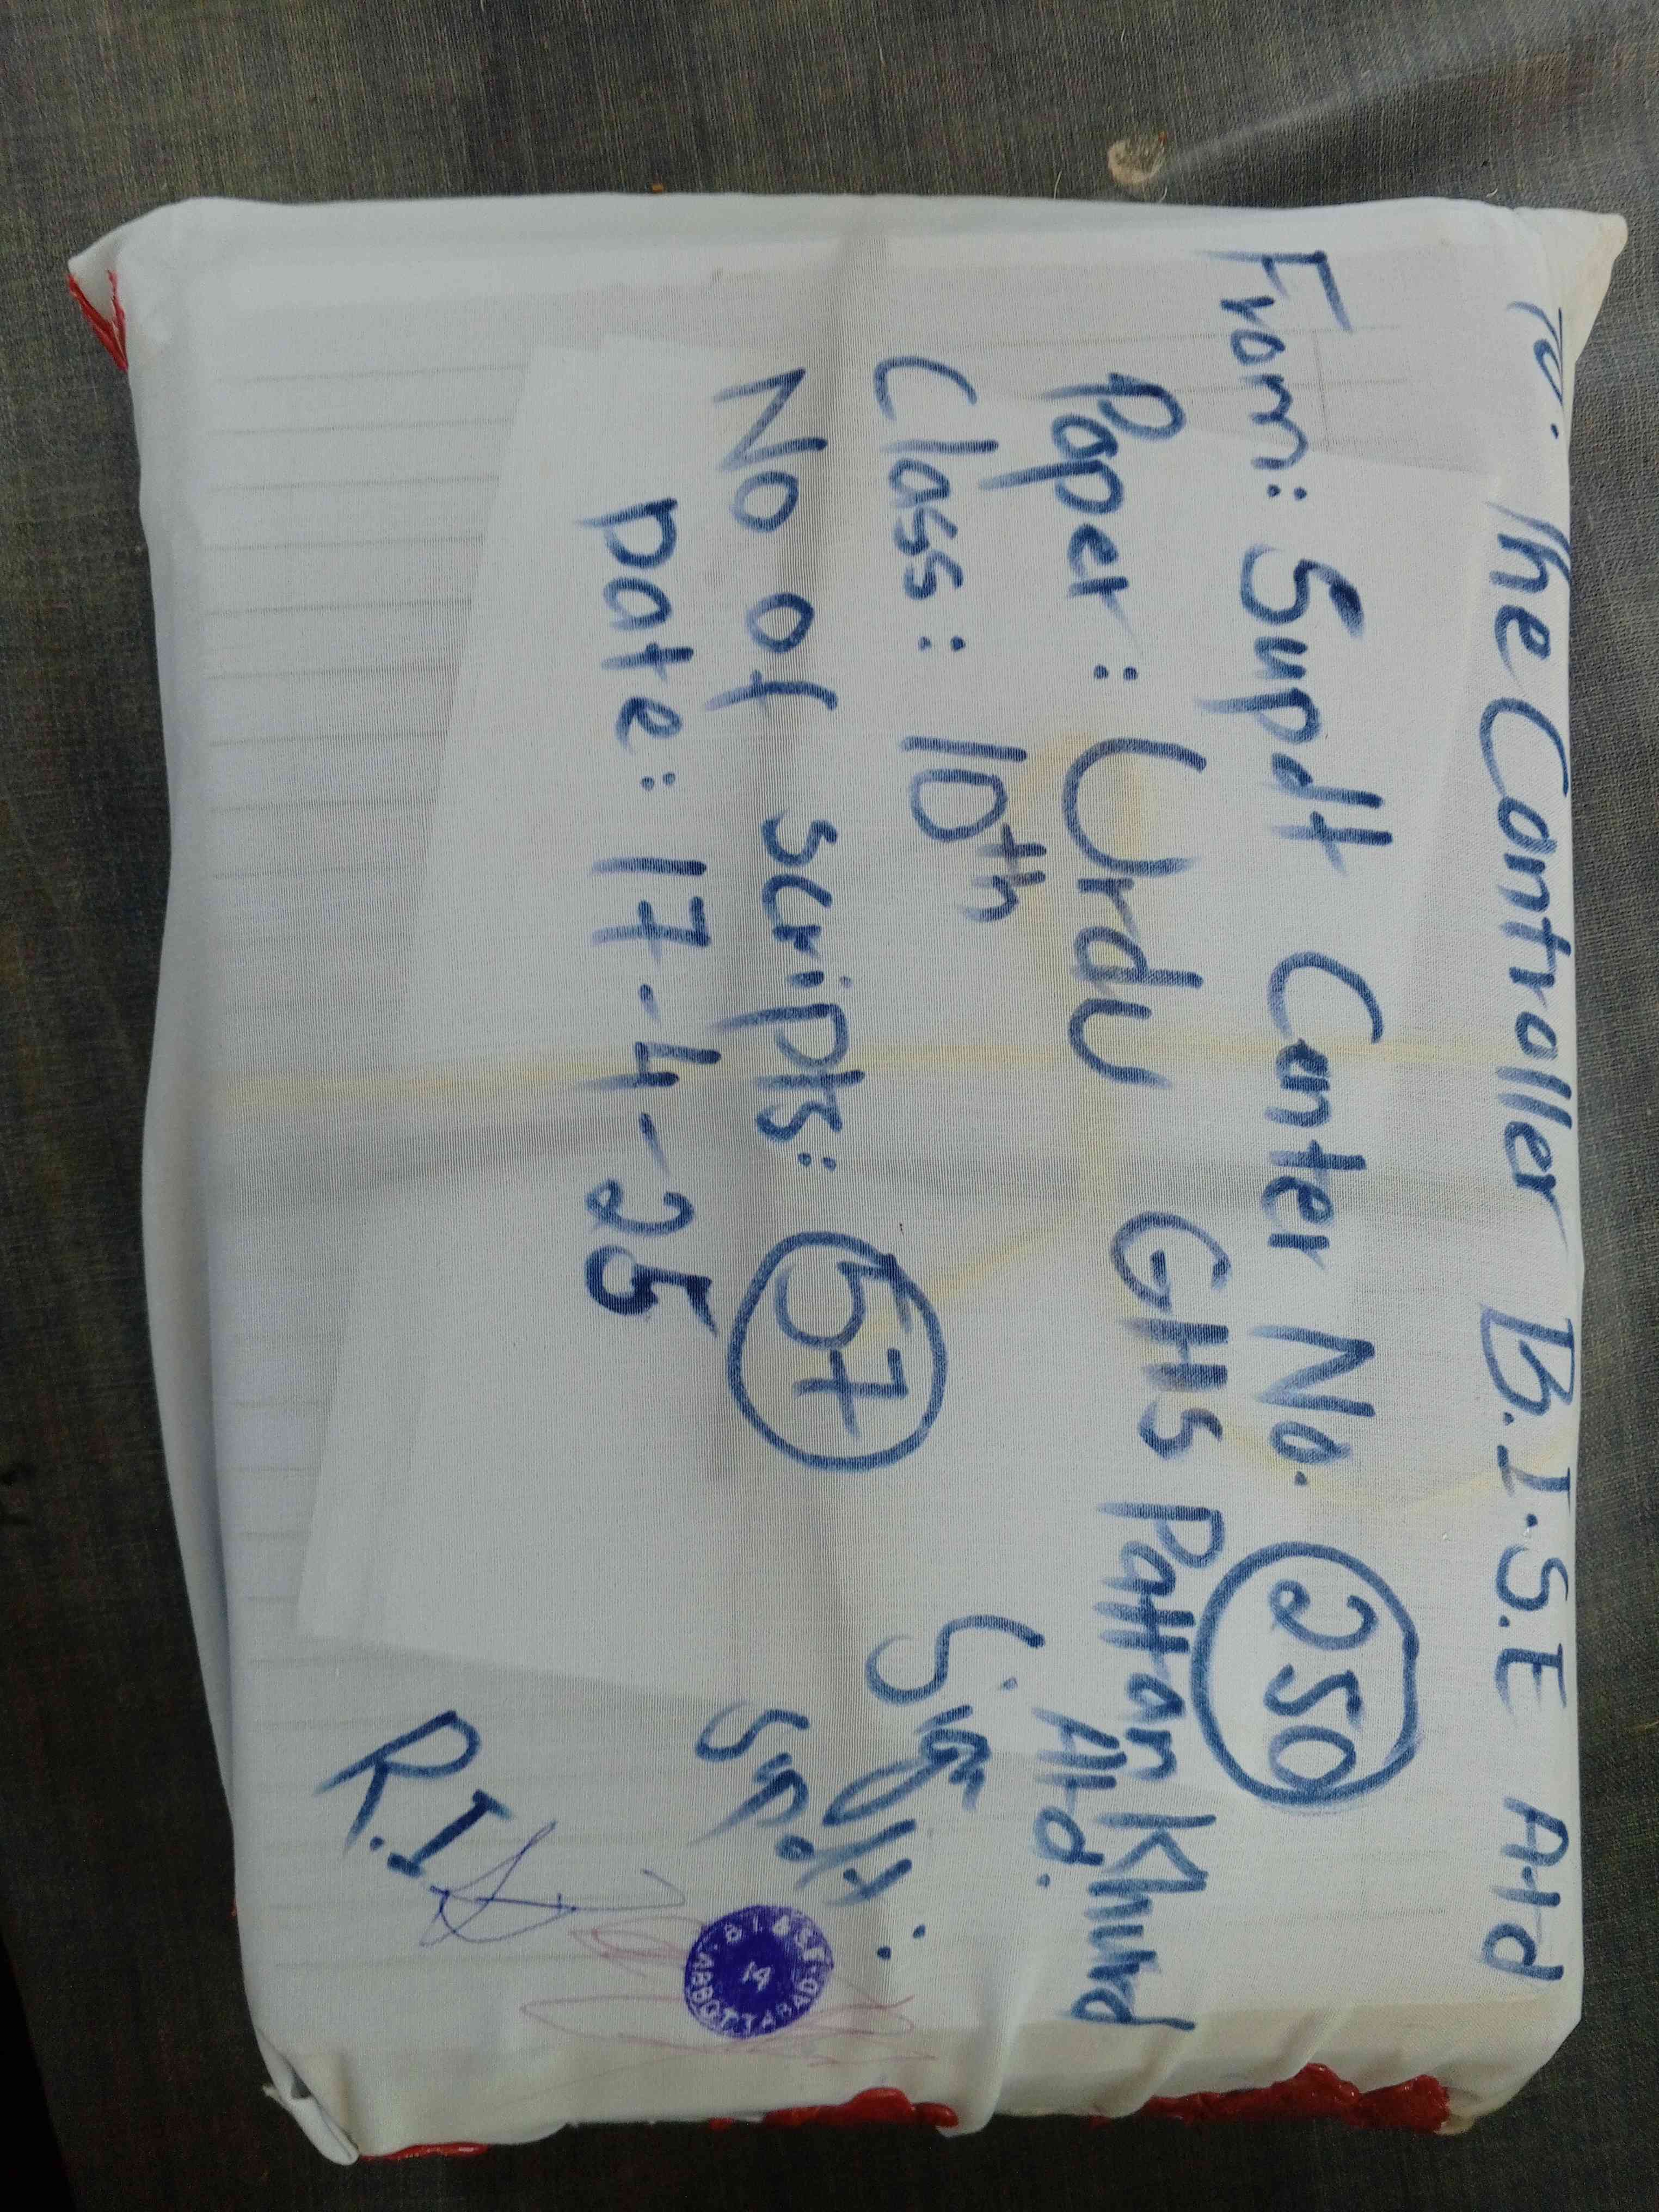 To. The Controller B.I.S.E Atd
From: Supdt Center No. 250
Paper: Urdu GHS Pattan Khurd
Atd.
Class: 10th
No of scripts: 57
Date: 17-4-25
Sign
Supdt:
R.I
B.I. & S.E.
14
ABBOTTABAD